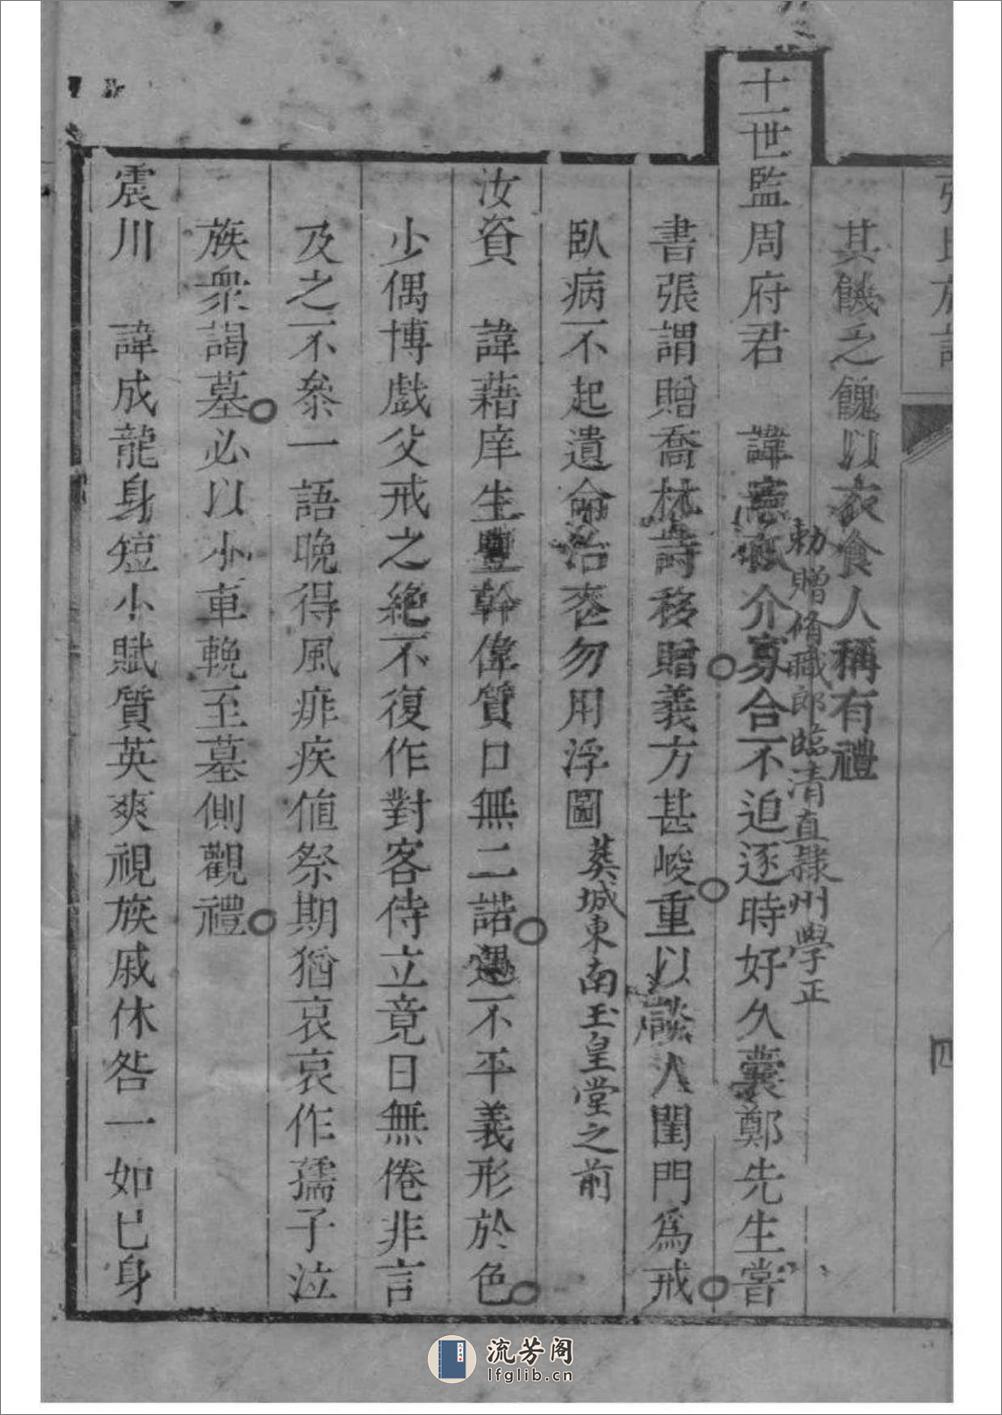 張氏族譜
四
其饑乏餽以衣食人稱有禮
十一世監周府君 諱
介寡合不迫逐時好久囊鄭先生嘗
勅贈脩職郎臨清直隸州學正
書張謂贈喬林詩移贈義方甚峻重以談人閨門爲戒
臥病不起遺命治喪勿用浮圖
葬城東南玉皇堂之前
汝資 諱藉庠生豐幹偉質口無二諾遇不平義形於色
少偶博戲父戒之絶不復作對客侍立竟日無倦非言
及之不叅一語晚得風痱疾値祭期猶哀哀作孺子泣
族衆謁墓必以小車輓至墓側觀禮
震川 諱成龍身短小賦質英爽視族戚休咎一如己身
流芳阁
lfglib.cn